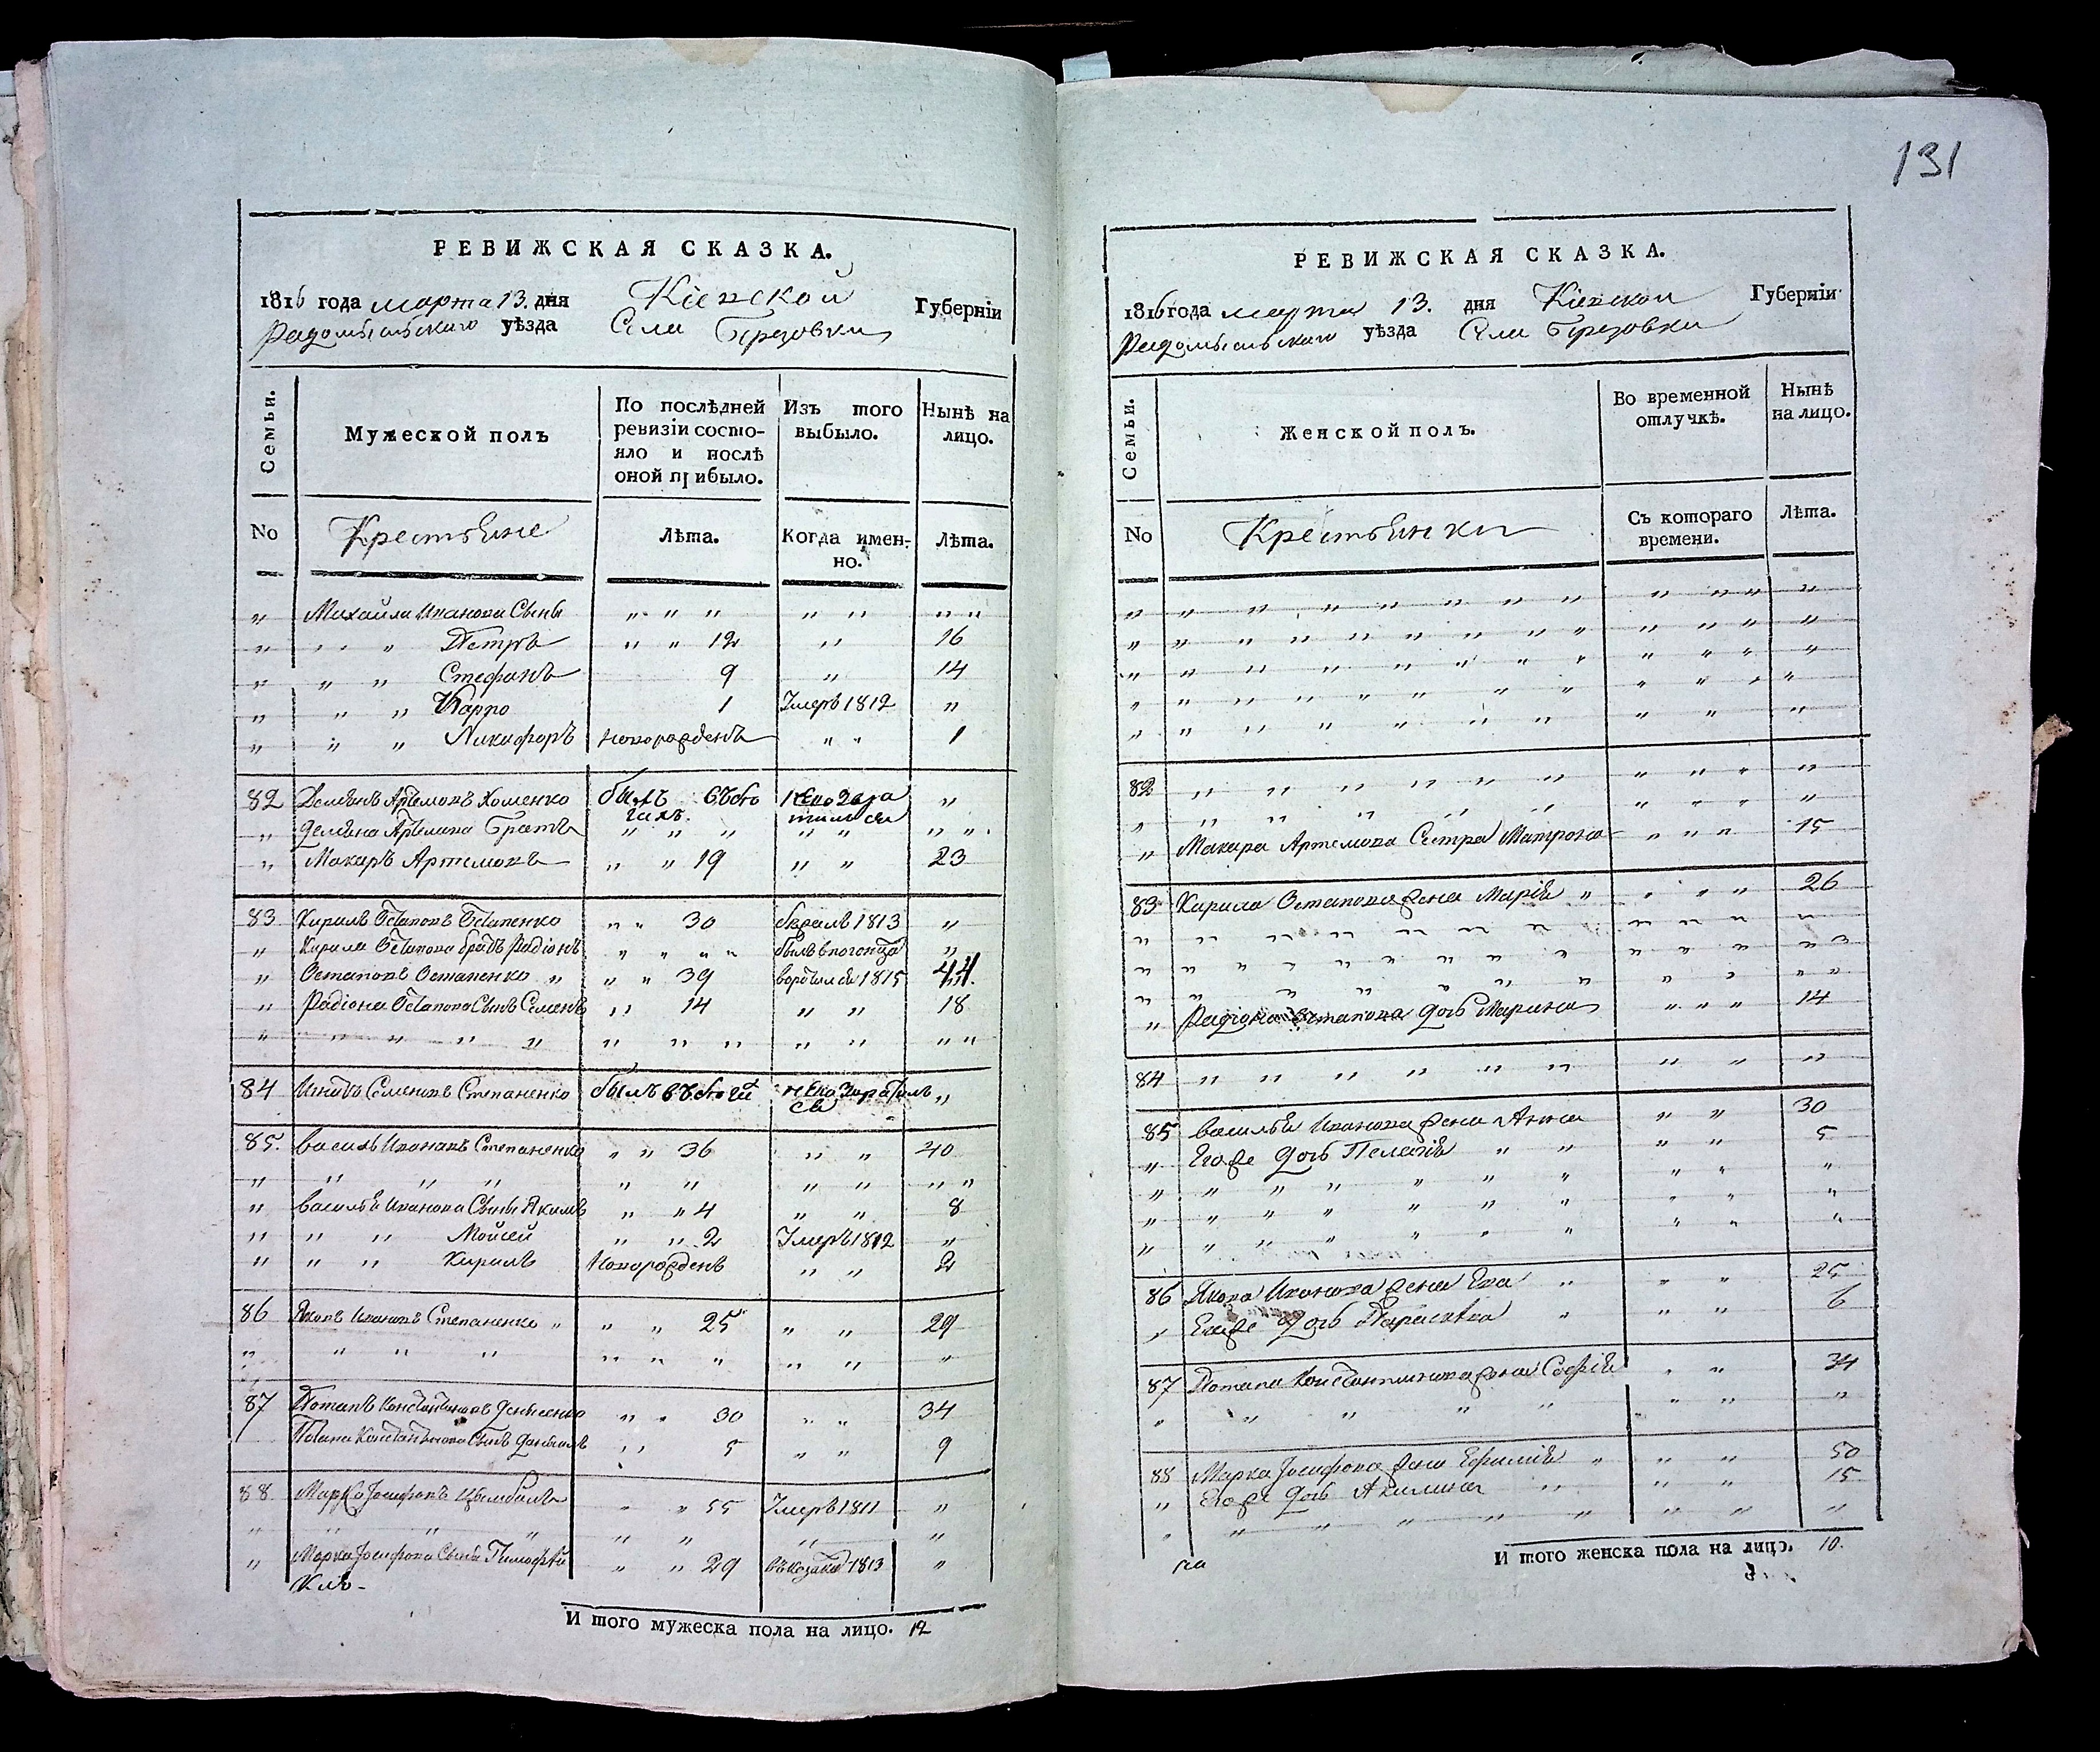 131
РЕВИЖСКАЯ СКАЗКА.
1816 года марта 13. дня Кіевской Губерніи
Радомысльскаго уѣзда Села Березовки
Семьи. Мужеской полъ По послѣдней ревизіи состояло и послѣ оной прибыло. Изъ того выбыло. Нынѣ на лицо.
No Крестьяне Лѣта. Когда именно. Лѣта.
„ Михайла Иванова Сыны „ „ „ „ „ „ „
„ „ „ Петръ „ „ 12 „ 16
„ „ „ Стефанъ 9 „ 14
„ „ „ Карпо 1 Умеръ 1812 „
„ „ „ Никифоръ новорожденъ „ „ 1
82 Демьянъ Артемовъ Хоменко былъ въ бѣгахъ. „
„ Демьяна Артемова Братъ „ „ „ „ „ „ „
„ Макаръ Артемовъ „ „ 19 „ „ 23
83 Кирилъ Остаповъ Остапенко „ „ 30 1813 „
„ Кирила Остапова братъ Радіонъ „ „ „ „ „
„ Остаповъ Остапенко „ „ „ 39 1815 44.
„ Радіона Остапова Сынъ Семенъ „ 14 „ „ 18
„ „ „ „ „ „ „ „ „ „ „ „
84 Семеновъ Степаненко былъ въ „
85. Василь Ивановъ Степаненко „ „ 36 „ „ 40
„ „ „ „ „ „ „ „ „ „
„ Василья Иванова Сыны Якимъ „ „ 4 „ „ 8
„ „ „ Мойсей „ „ 2 Умеръ 1812 „
„ „ „ Кирилъ Новорожденъ „ „ 2
86 Яковъ Ивановъ Степаненко „ „ „ 25 „ „ 29
„ „ „ „ „ „ „ „ „ „
87 Потапъ Константиновъ „ „ 30 „ „ 34
Потапа Константинова Сынъ Даніилъ „ 5 „ „ 9
88 Марко Іосифовъ Цымбалъ „ „ 55 Умеръ 1811 „
„ „ „ „ „ „ „ „
„ Марка Іосифова Сыны Тимофѣй „ „ 29 1813 „
И того мужеска пола на лицо. 12
РЕВИЖСКАЯ СКАЗКА.
1816 года марта 13. дня Кіевской Губерніи
Радомысльскаго уѣзда Села Березовки
Семьи. Женской полъ. Во временной отлучкѣ. Нынѣ на лицо.
No Крестьянки Съ котораго времени. Лѣта.
„ „ „ „ „ „ „ „ „ „ „ „
„ „ „ „ „ „ „ „ „ „ „ „
„ „ „ „ „ „ „ „ „ „ „ „
„ „ „ „ „ „ „ „ „ „ „ „
„ „ „ „ „ „ „ „ „ „
82 „ „ „ „ „ „ „ „ „ „
„ „ „ „ „ „ „ „ „ „
„ Макара Артемова Сестра Матрона „ „ „ 15
83 Кирила Остапова жена Марія „ „ „ „ 26
„ „ „ „ „ „ „ „ „ „ „
„ „ „ „ „ „ „ „ „ „ „
„ „ „ „ „ „ „ „ „ „
„ Радіона Остапова дочь Марина „ „ „ 14
84 „ „ „ „ „ „ „ „ „
85 Василья Иванова жена Анна „ „ 30
„ Егоже дочь Пелагія „ „ „ „ 5
„ „ „ „ „ „ „ „ „ „
„ „ „ „ „ „ „ „ „ „
„ „ „ „ „ „ „ „ „ „
86 Якова Иванова жена Ева „ „ „ 25
„ Егоже дочь Параскева „ „ „ 6
87 Потапа Константинова жена Софія „ „ 34
„ „ „ „ „ „ „ „
88 Марка Іосифова жена Ефимія „ „ „ 50
„ Егоже дочь Акилина „ „ „ 15
„ „ „ „ „ „ „ „ „
И того женска пола на лицо. 10.